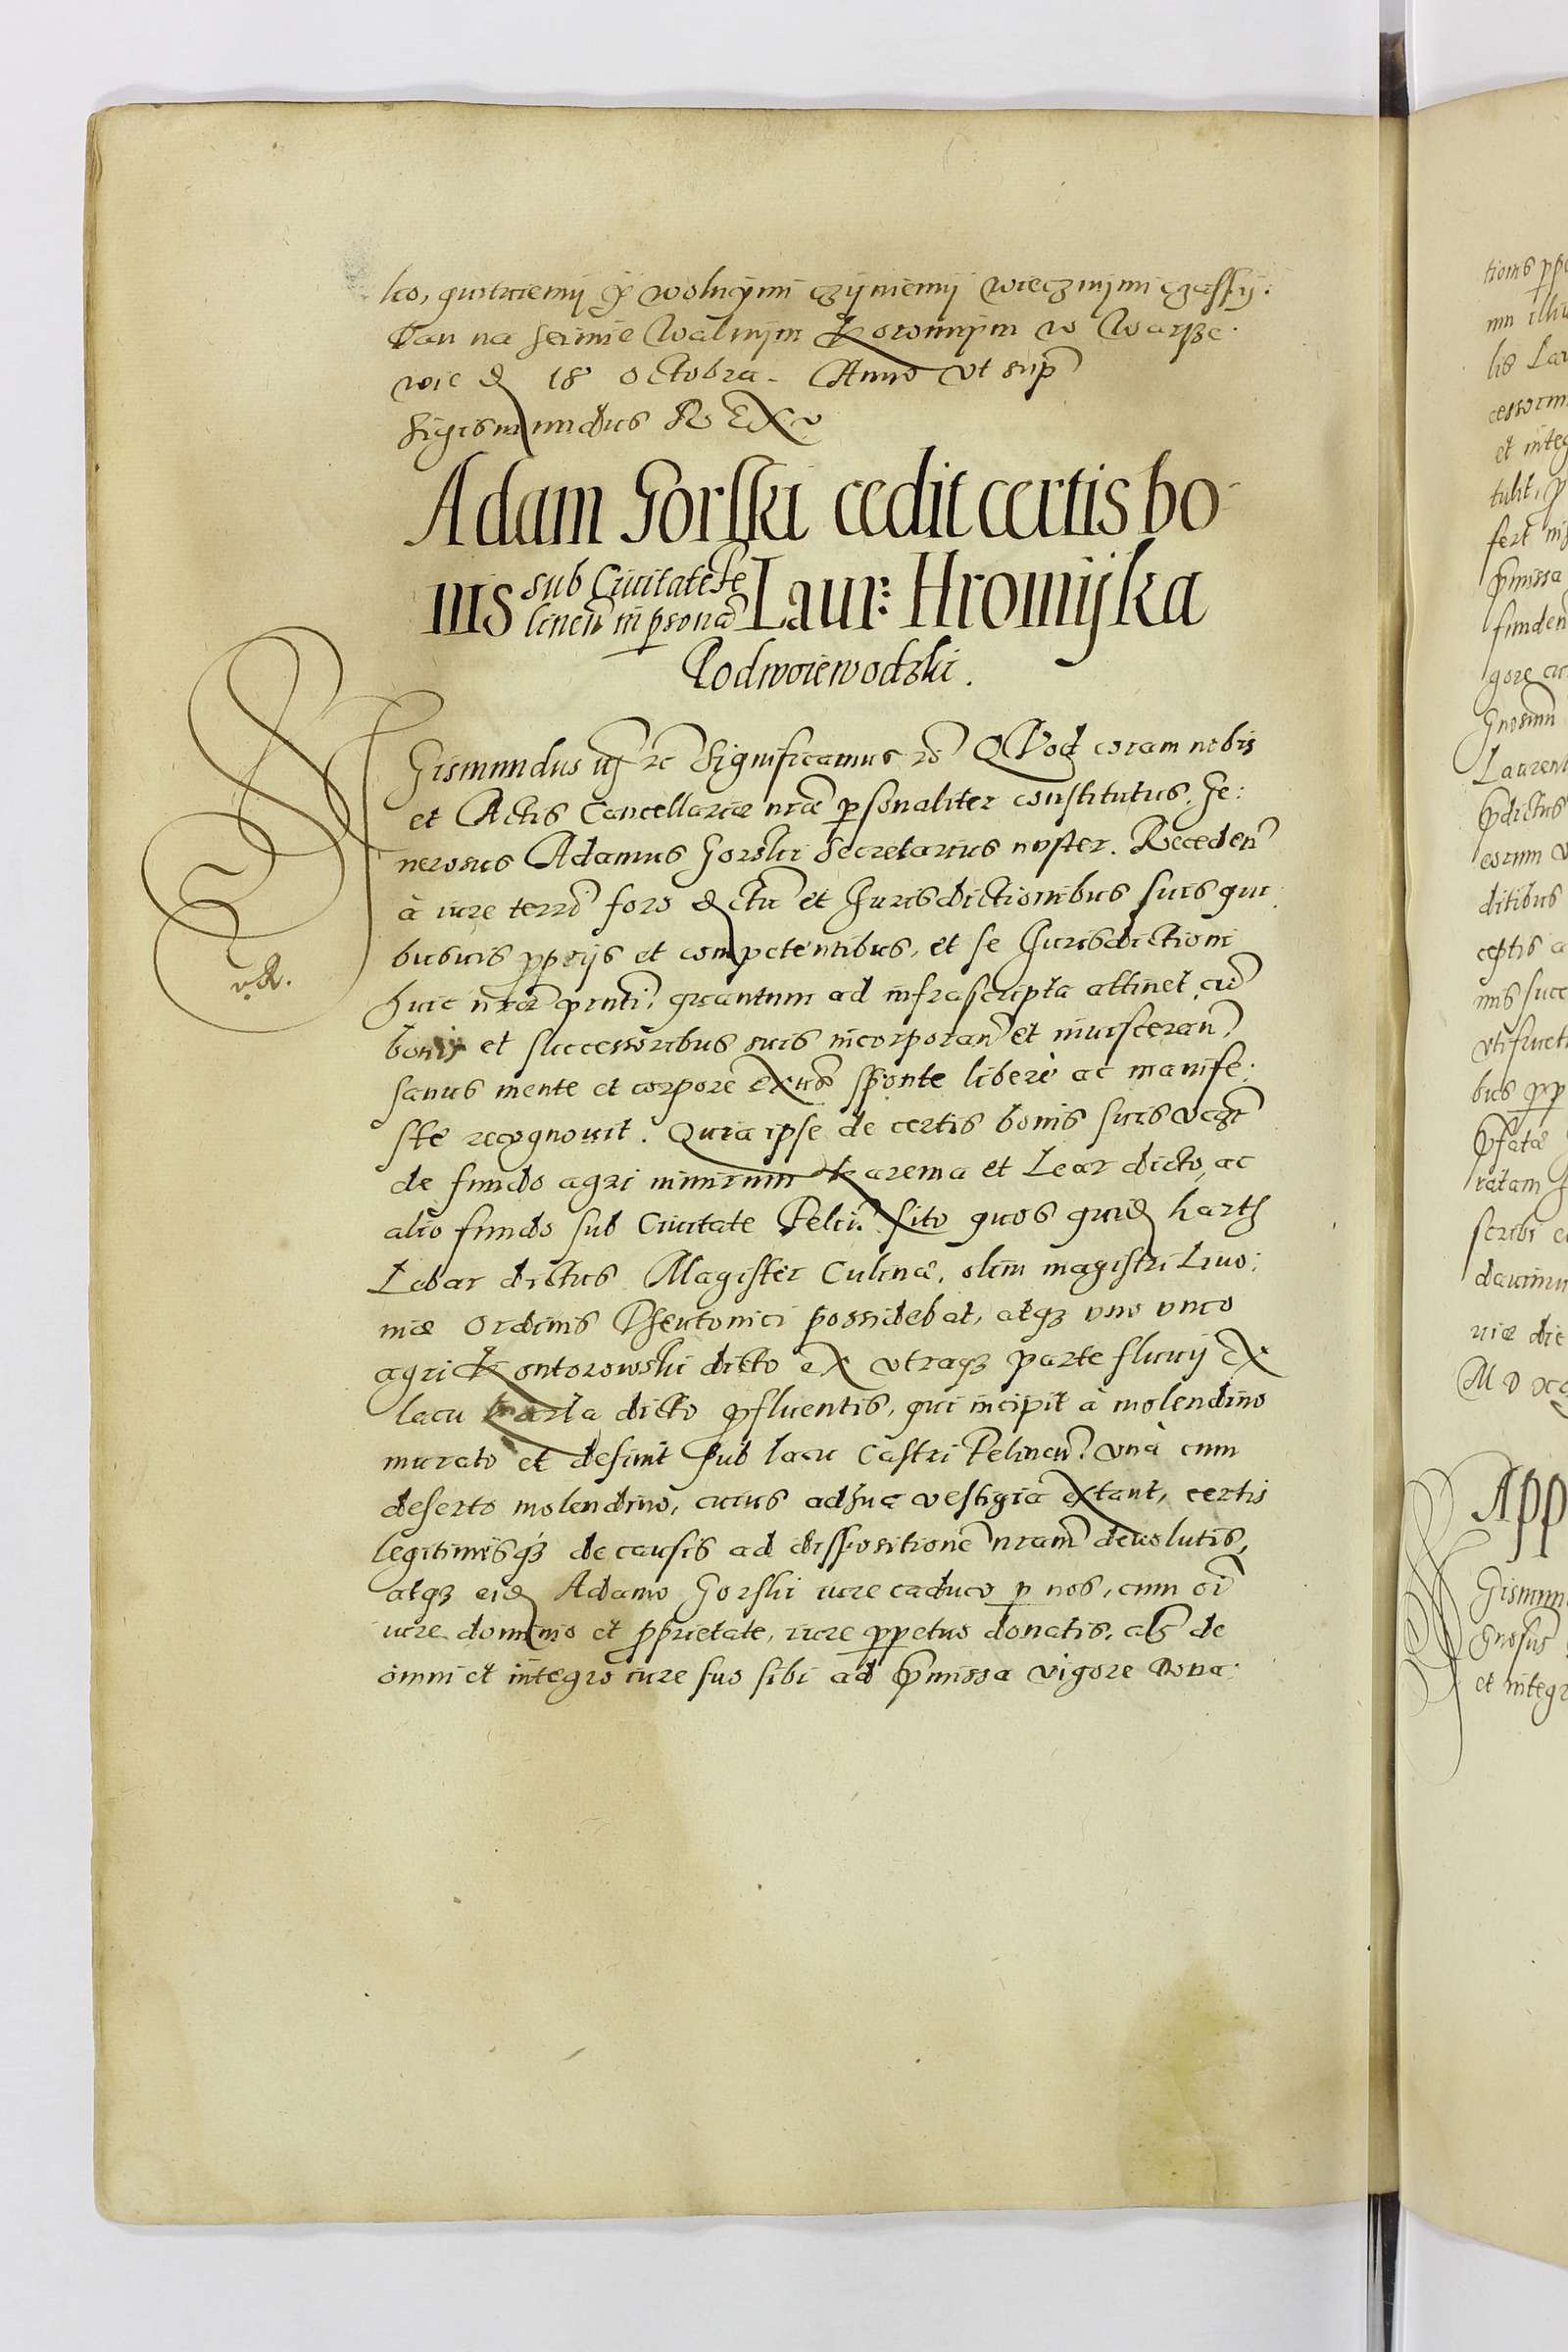 ko, quitniemy y wolnymi czyniemy wiecznymi czassy.
Dan na seimie Walnym Koronnym w Warsze-
wie d 18 Octobra. Anno vt sup
Sigismundus Rex
Adam Gorski cedit certis bo-
nis sub Ciuitate Fe
lineñ in psonã Laur: Hromyka
Podwoiewodzki.
SIgismundus iij rc Significamus rc QVod coram nobis
et Actis Cancellariæ nræ psonaliter constitutus. Ge:
nerosus Adamus Gorski Secretarius noster. Recedeñ
à iure terrõ foro dctu et Jurisdictionibus suis qui
busuis pprijs et competentibus, et se Jurisdictioni
huic nræ pnti, quantum ad infrascripta attinet, cũ
bonis et successoribus suis incorporañ et inuisceran,
sanus mente et corpore exñs sponte liberè ac manife:
stè recognouit. Quia ipse de certis bonis suis vczt
de fundo agri nimirum Karema et Lear dicto, ac
alio fundo sub Ciuitate Feliñ. sito quos quid harth
Lebar dictus Magister Culinæ, olim magistri Liuo:
niæ Ordinis Theutonici possidebat, atqz vno vnco
agri Kontorowski dicto ex vtraqz parte fluuij Ex
lacu Karla dicto pfluentis, qui incipit à molendino
murato et desinit sub lacu Castri Felineñ. vnà cum
deserto molendino, cuius adhuc vestigia extant, certis
legitimisqz de causis ad dispositionẽ nram deuolutis,
atqz eid Adamo Gorski iure caduco p nos, cum oĩ
iure dominio et pprietate, iure ppetuo donatis, ab de
omni et integro iure suo sibi ad pmissa vigore Dona:
v. R.